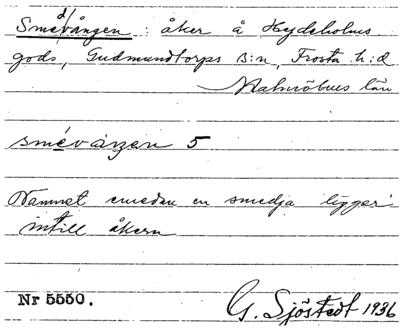 Smedvången : åker å Hjdeholms
gods, Gudmundtorps s:n, Frosta h:d
Malmöhus län
smévången 5
Namnet emedan en smedja ligger
intill åkern
Nr 5550.
G. Sjöstedt 1936